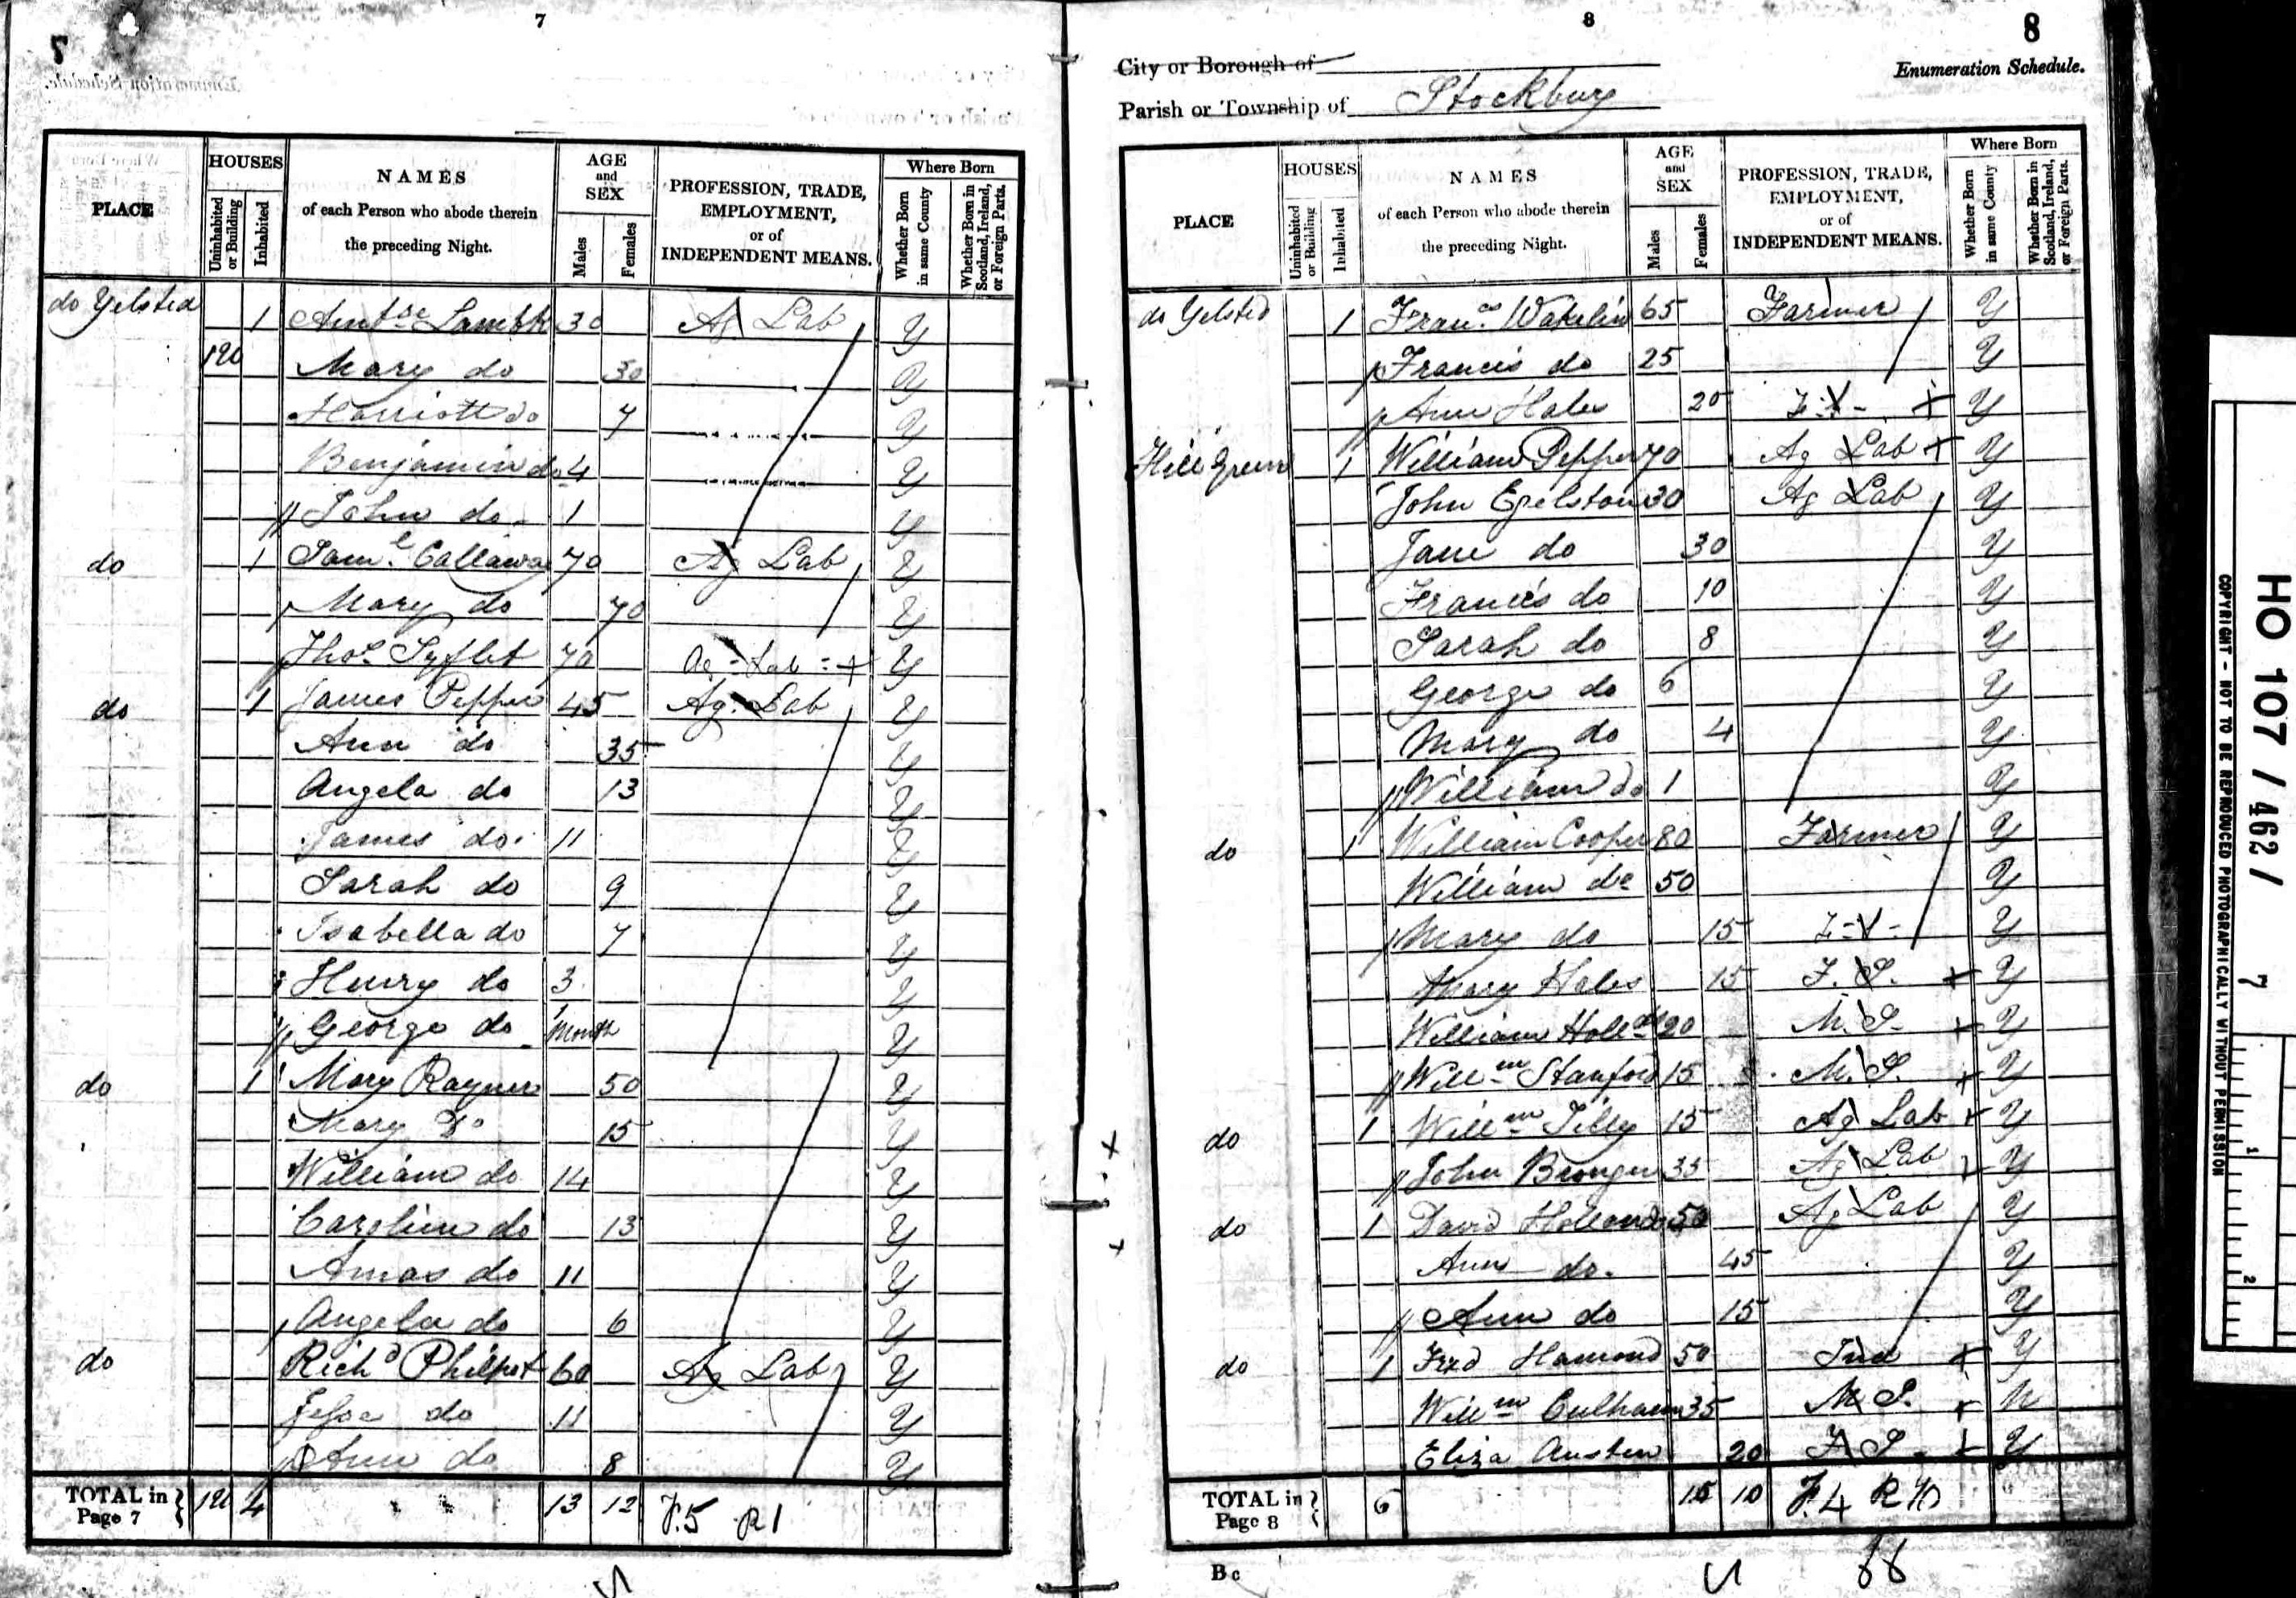 7
7
HOUSES
NAMES
of each Person who abode therein
the preceding Night.
AGE
and
SEX
PROFESSION, TRADE,
EMPLOYMENT,
or of
INDEPENDENT MEANS.
Where Born
PLACE
Uninhabited
or Building
Inhabited
Males
Females
Whether Born
in same County
Whether Born in
Scotland, Ireland,
or Foreign Parts.
do Yelsted 1 30 Ag Lab Y
1 Mary do 30 Y
Harriott do 7 Y
Benjamin do 4 Y
John do 1 Y
do 1 Saml Callawa 70 Ag Lab Y
Mary do 70 Y
Thos Syflet 70 Ag Lab Y
do 1 James Pepper 45 Ag Lab Y
Ann do 35 Y
Angela do 13 Y
James do 11 Y
Sarah do 9 Y
Isabella do 7 Y
Henry do 3 Y
George do 1 Month Y
do 1 Mary Rayner 50 Y
Mary Do 15 Y
William do 14 Y
Caroline do 13 Y
Amos do 11 Y
Angela do 6 Y
do Richd Philpot 60 Ag Lab Y
Jesse do 11 Y
Ann do 8 Y
TOTAL in
Page 7 4 13 12 F.5 R1
8
8
City or Borough of
Enumeration Schedule.
Parish or Township of Stockbury
PLACE
HOUSES
Uninhabited
or Building
Inhabited
NAMES
of each Person who abode therein
the preceding Night.
AGE
and
SEX
Males
Females
PROFESSION, TRADE,
EMPLOYMENT,
or of
INDEPENDENT MEANS.
Where Born
Whether Born
in same County
Whether Born in
Scotland, Ireland,
or Foreign Parts.
do Yelsted 1 Frans Wakelin 65 Farmer Y
Francis do 25 Y
Ann Hales 20 Y
Hill Green 1 William Pepper 70 Ag Lab Y
John Egelston 30 Ag Lab Y
Jane do 30 Y
Francis do 10 Y
Sarah do 8 Y
George do 6 Y
Mary do 4 Y
William do 1 Y
do 1 William Cooper 80 Farmer Y
William do 50 Y
Mary do 15 Y
Mary Hales 15 F.S. Y
William 20 M.S. Y
Willm Stanford 15 M.S. Y
do 1 Willm Tilly 15 Ag Lab Y
John 35 Ag Lab Y
do 1 David 50 Ag Lab Y
Ann do 45 Y
Ann do 15 Y
do 1 Fred Hamond 50 Ind Y
Willm Culham 35 M S. N
Eliza Austen 20 F S. Y
TOTAL in
Page 8 6 15 10 F.4 R 10
Bc
HO 107 / 462 / 7
COPYRIGHT - NOT TO BE REPRODUCED PHOTOGRAPHICALLY WITHOUT PERMISSION
1
2